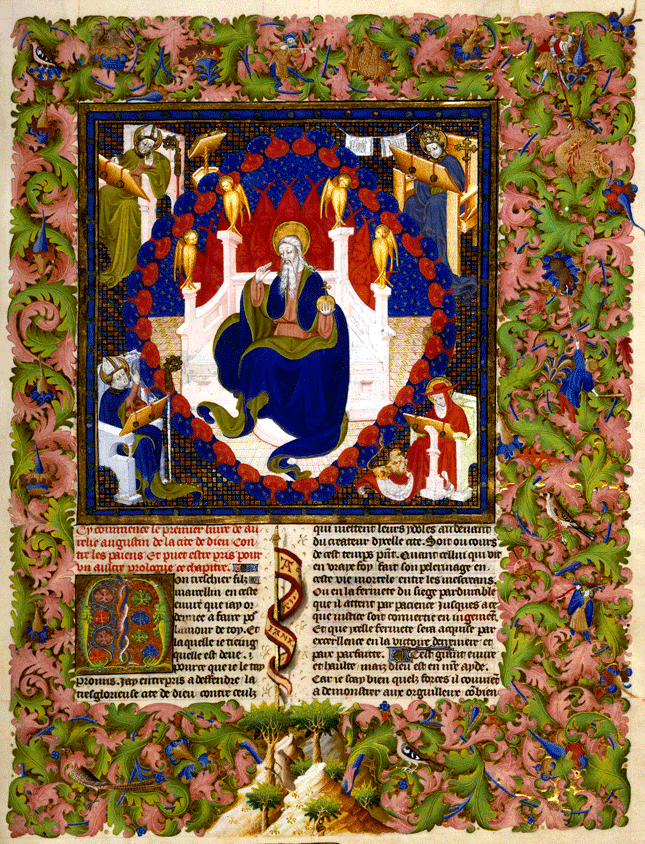 Cy commence le premier liure de au
relie augustin de la cite de dieu Con
tre les paiens Et puet estre pris pour
vn aultre prologue ce chapitre.
on treschier filz
marcellin en ceste
euure que iay or
donnee a faire po
lamour de toy. Et
laquelle ie tieng
quelle est deue. &
pource que ie le tay
promis. Jay entrepris a deffendre la
tresglorieuse cite de dieu contre ceulz
qui mettent leurs ydoles au deuant
du createur dycelle cite. Soit ou cours
de cest temps pñt. Quant cellui qui vit
en vraye foy fait son pelerinage en
ceste vie mortele entre les mescreans.
Ou en la fermete du siege pardurable
que il attent par pacience Jusques a ce
que iustice soit conuertie en iugement.
Et que ycelle fermete sera aquise par
excellence en la victoire derreniere &
paix parfaitte. Cest euure grant
et haulte mais dieu est en nr̃e ayde.
Car ie scay bien quelz forces il conuiẽt
a demonstrer aux orguilleux cõbien